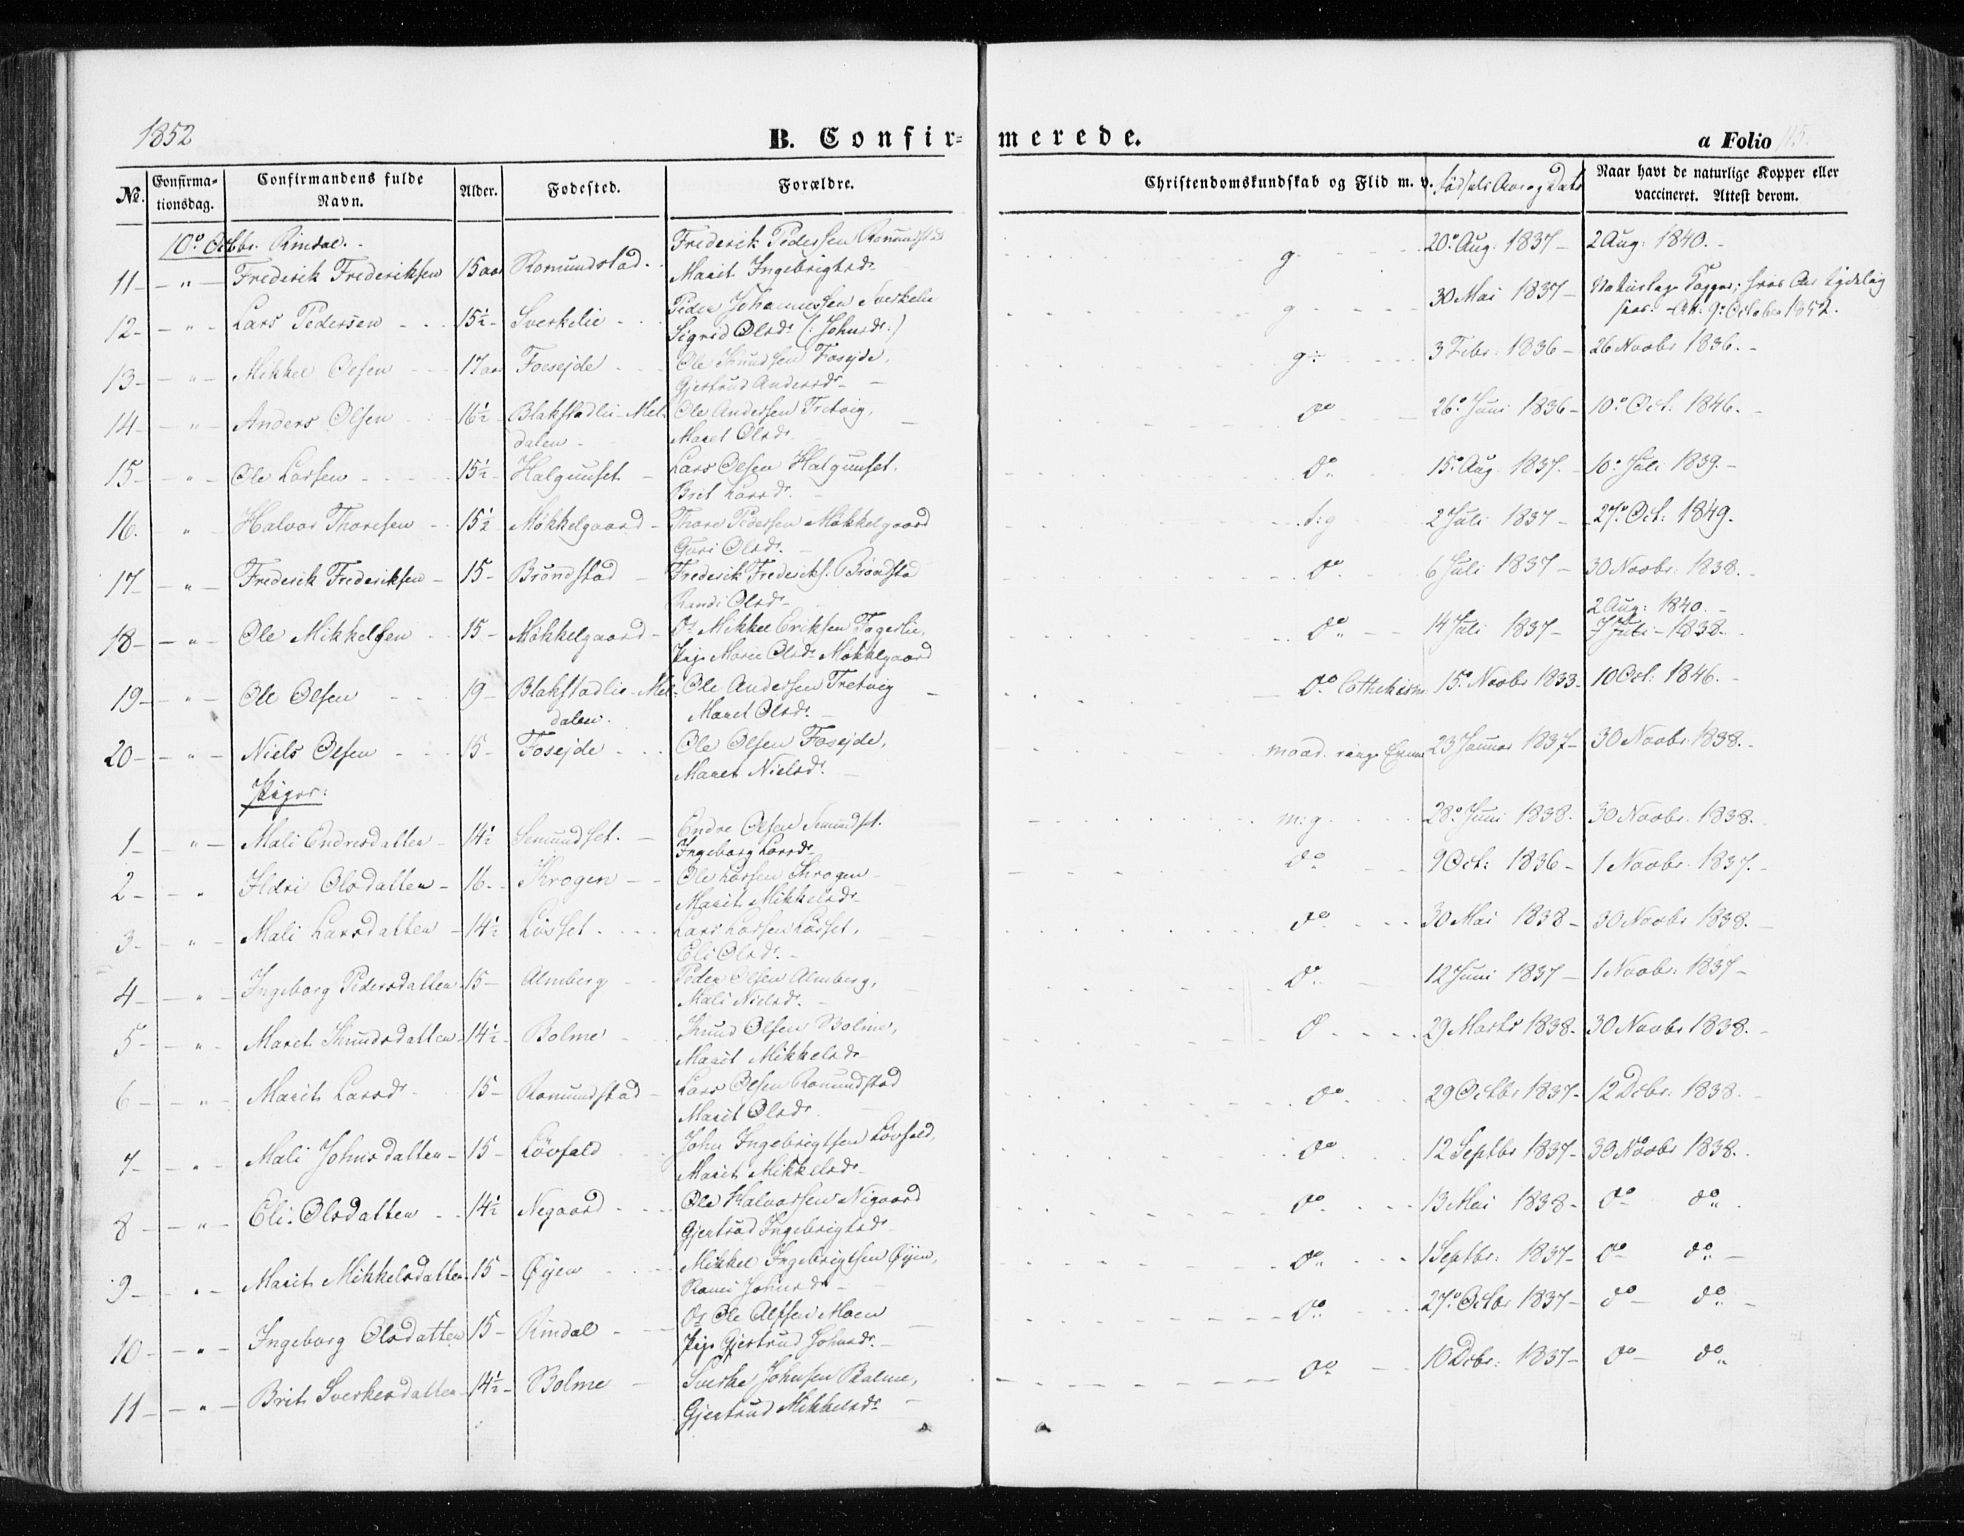 1852
B. Confirmerede.
a Folio 115.
No. Confirmationsdag. Confirmandens fulde Navn. Alder. Fødested. Forældre. Christendomskundskab og Flid m. v. Fødsels Aar og Dato Naar havt de naturlige Kopper eller vaccineret. Attest derom.
10º Octbr. Rindal.
11 — " — Frederik Frederiksen 15 aar Romundstad Frederik Pedersen Romundstad g 20º Aug. 1837 2 Aug: 1840.
Marit Ingebrigtsdr
12 — " — Lars Pedersen 15½ Sverkelie Peder Johannessen Sverkelie g 30 Mai 1837 Naturlige Kopper; har
Sigrid Olsdr (: Johnsdr:) Att. 9º October 1852.
13 — " — Mikkel Olsen 17 aar Foesejde Ole Knudsen Fosejde, g÷ 3 Febr: 1836 26 Novbr 1836.
Gjertrud Andersdr
14 — " — Anders Olsen 16½ Blakstadlie Mel- Ole Andersen Tretvig, do 26º Juni 1836 10º Oct: 1846.
dalen Maret Olsdr
15 — " — Ole Larsen 15½ Halgunset Lars Olsen Halgunset. do 15º Aug. 1837. 10º Juli 1839.
Brit Larsdr.
16. " Halvor Thoresen 15½ Møkkelgaard Thore Pedersen Møkkelgaard t:g 2 Juli 1837 27º Oct: 1849.
Guri Olsdr.
17 — " — Frederik Frederiksen 15 Brøndstad Frederik Frederiks. Brøndsta do 6 Juli 1837 30 Novbr: 1838.
Randi Olsdr 2 Aug: 1840.
18 — " — Ole Mikkelsen 15 Møkkelgaard Mikkel Eriksen Fagerlie, do 14 Juli 1837 7 Juli 1838.
Pige Marie Olsdr Møkkelgaard
19 — " — Ole Olsen 19 Blakstadlie Mel- Ole Andersen Tretvig do Cathekism. 15º Novbr 1833 10 Oct: 1846.
dalen. Maret Olsdr
20 — " — Niels Olsen 15 Fosejde Ole Olsen Fosejde, maad. 23 Januar 1837 30 Novbr: 1838.
Maret Nielsdr.
Piger:
1 — " — Mali Endresdatter 14½ Semundset. Endre Olsen Semundset. m:g 28º Juni 1838. 30 Novbr. 1838.
Ingeborg Larsdr
2 — " Ildri Olsdatter 16 Krogen Ole Larsen Krogen do 9 Oct: 1836 1 Novbr. 1837.
Marit Mikkelsdr
3 — " — Mali Larsdatter 14½ Løsset Lars Larsen Løsset, do 30 Mai 1838 30 Novbr 1838.
Eli Olsdr.
4 — " — Ingeborg Pedersdatter 15 Almberg Peder Olsen Almberg, do 12 Juni 1837 1 Novbr: 1837
Mali Nielsdr.
5 — " — Maret Knudsdatter 14½ Bolme Knud Olsen Bolme, do 29 Marts 1838. 30 Novbr 1838.
Marit Mikkelsdr
6 — " — Marit Larsdr 15 Romundstad Lars Olsen Romundstad do 29 Octbr 1837 12 Decbr: 1838.
Marit Olsdr
7 — " — Mali Johnsdatter 15 Løvfald John Ingebrigtsen Løvfald, do 12 Septbr 1837 30 Novbr 1838.
Marit Mikkelsdr
8 — " — Eli Olsdatter 14½ Negaard Ole Halvorsen Nigaard do 13 Mai 1838 do do
Gjertrud Ingebrigtsdr
9 — " — Marit Mikkelsdatter 15 Øyen Mikkel Ingebrigtsen Øyen, do 1 Septbr: 1837 do do
Johnsdr
10 — " — Ingeborg Olsdatter 15 Rindal Ole Olsen Moen do 27º Octbr 1837 do do
Pige Gjertrud Johnsdr.
11 — " — Brit Sverkesdatter 14½ Bolme Sverke Johnsen Bolme, do 10 Decbr: 1837 do do
Gjertrud Mikkelsdr